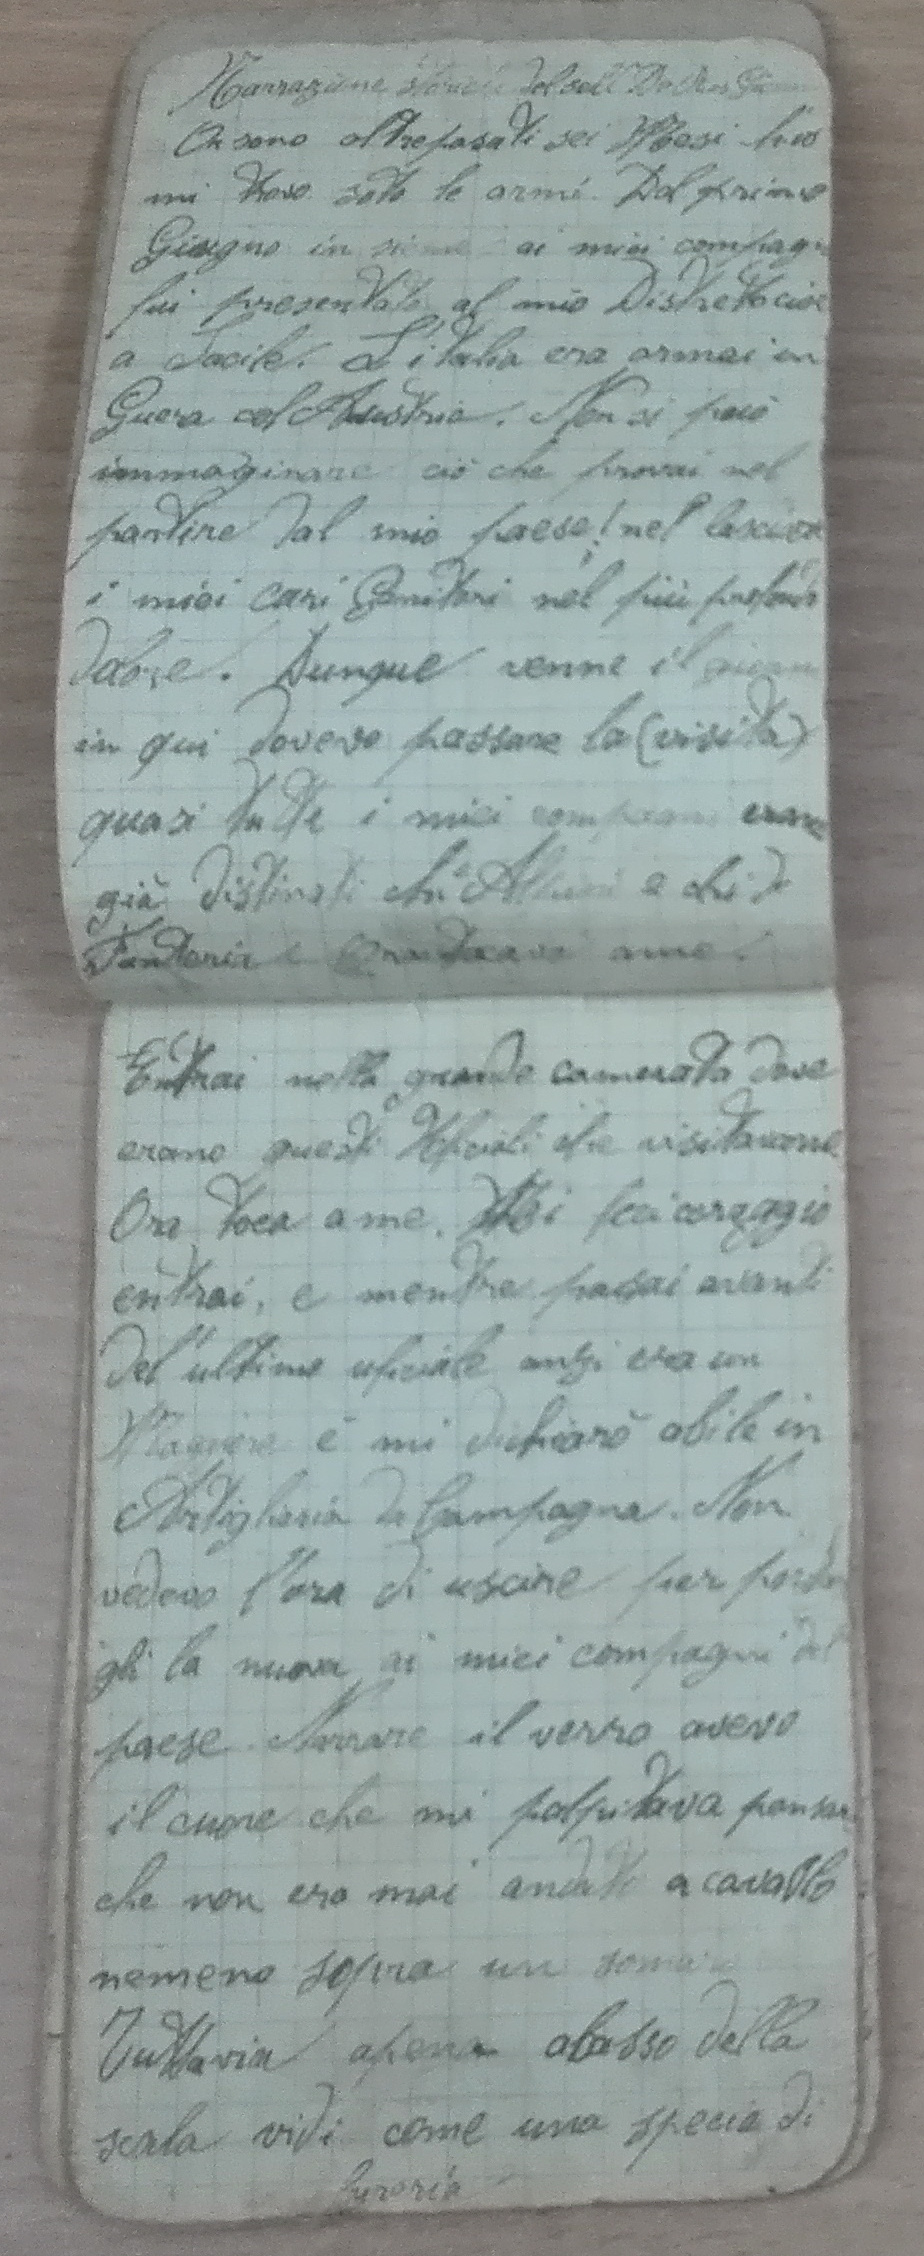 Narrazione storica del sold
On sono oltrepasati sei Mesi
mi trovo soto le armi. Dal primo
Giugno in sieme ai miei compagn
fui presentato al mio Distretto
a Sacile. L'italia era ormai in
Guera col Austria. Non si può
immaginare ciò che provai nel
partire dal mio paese! nel lasciare
i miei cari Genitori nel più profondo
dolore. Dunque venne il giorno
in qui dovevo passare la (visita)
quasi tutti i miei compagni erano
già distinati chi Alpini e chi di
Fanteria e Ora tocava ame.
Entrai nella grande camerata dove
erano questi Uficiali che visitavano
Ora toca ame. Mi feci coraggio
entrai, e mentre pasai avanti
del'ultimo uficiale anzi era un
Magiore è mi dichiarò abile in
Artiglieria da Campagna. Non
vedevo l'ora di uscire per portar
gli la nuova ai miei compagni del
paese. Narrare il verro avevo
il cuore che mi palpitava pensar
che non ero mai andato a cavallo
nemeno sopra un somaro
Tuttavia apena abasso della
scala vidi come una specie di